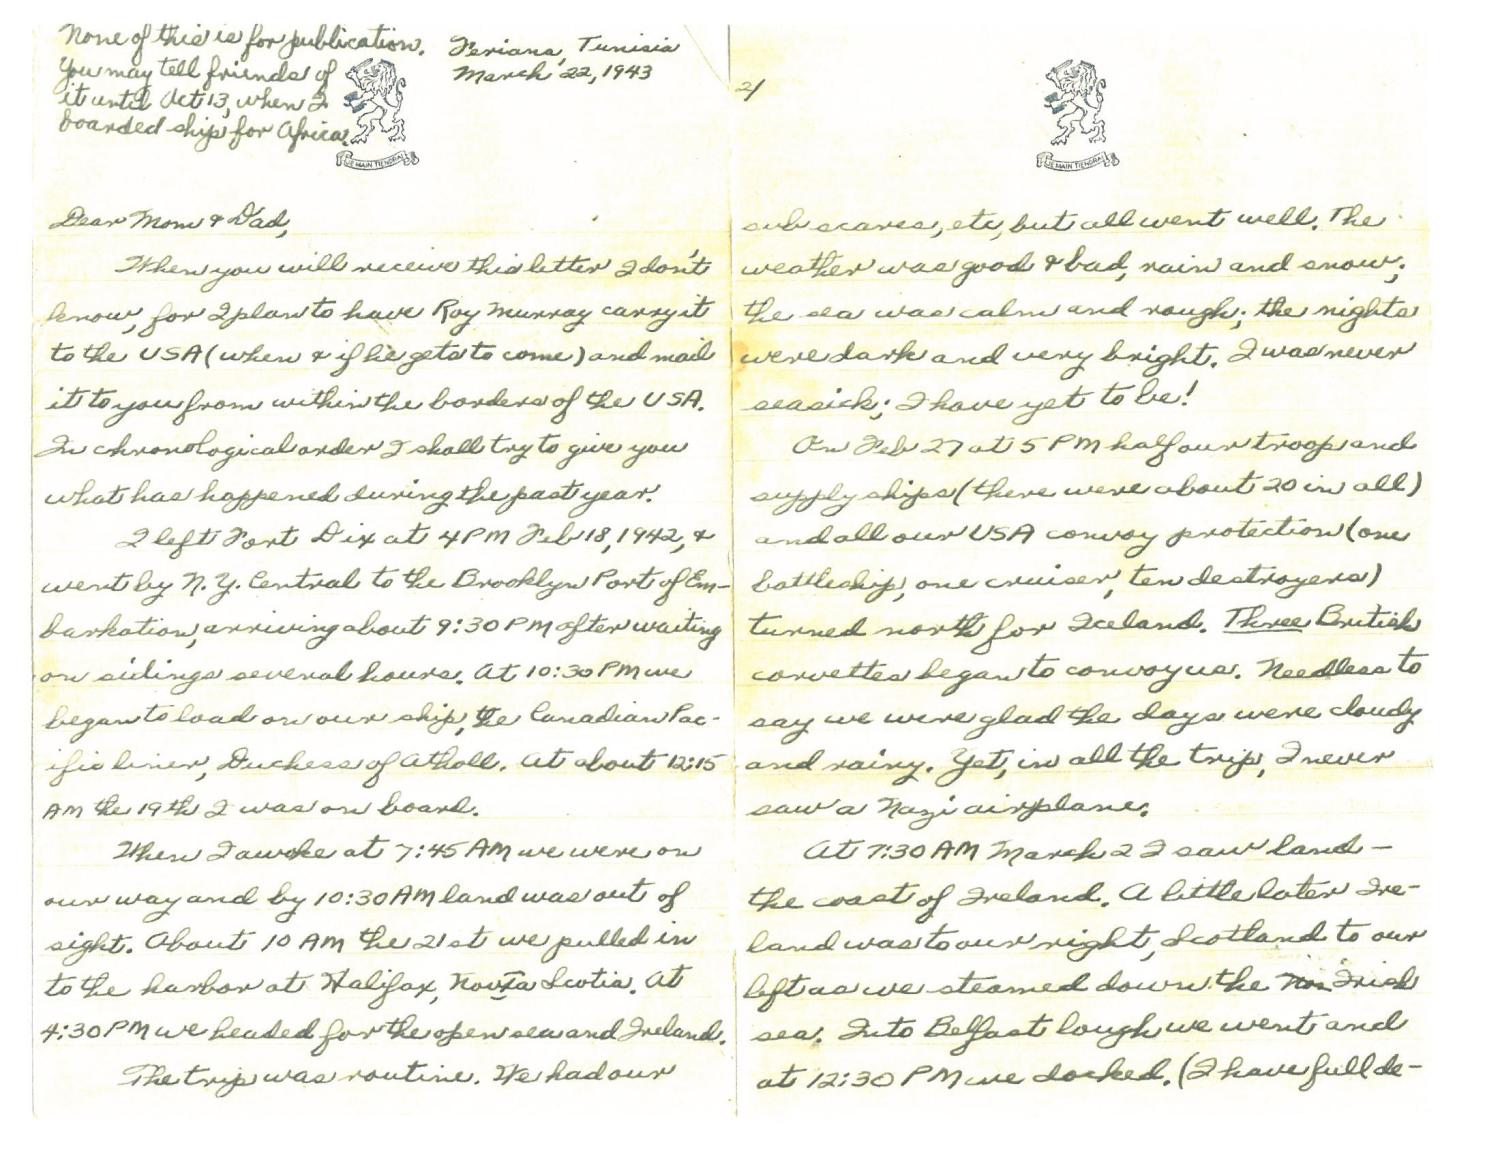 None of this is for publication.
You may tell friends of
it until Oct 13, when I
boarded ship for Africa.
Feriana, Tunisia
March 22, 1943
JE MAIN TIENDRAI
Dear Mom & Dad,
When you will receive this letter I don't
know, for I plan to have Roy Murray carry it
to the USA (when & if he gets to come) and mail
it to you from within the borders of the USA.
In chronological order I shall try to give you
what has happened during the past year.
I left Fort Dix at 4 PM Feb 18, 1942, &
went by N. Y. Central to the Brooklyn Port of Em-
barkation, arriving about 9:30 PM after waiting
on sidings several hours. At 10:30 PM we
began to load on our ship, the Canadian Pac-
ific liner, Duchess of Atholl. At about 12:15
AM the 19th I was on board.
When I awoke at 7:45 AM we were on
our way and by 10:30 AM land was out of
sight. About 10 AM the 21st we pulled in
to the harbor at Halifax, Nova Scotia. At
4:30 PM we headed for the open sea and Ireland.
The trip was routine. We had our
2/
JE MAIN TIENDRAI
sub scares, etc, but all went well. The
weather was good & bad, rain and snow;
the sea was calm and rough; the nights
were dark and very bright. I was never
seasick; I have yet to be!
On Feb 27 at 5 PM half our troop and
supply ships (there were about 20 in all)
and all our USA convoy protection (one
battleship, one cruiser, ten destroyers)
turned north for Iceland. Three British
corvettes began to convoy us. Needless to
say we were glad the days were cloudy
and rainy. Yet, in all the trip, I never
saw a Nazi airplane.
At 7:30 AM March 2 I saw land —
the coast of Ireland. A little later Ire-
land was to our right, Scotland to our
left as we steamed down the Irish
sea. Into Belfast lough we went and
at 12:30 PM we docked. (I have full de-